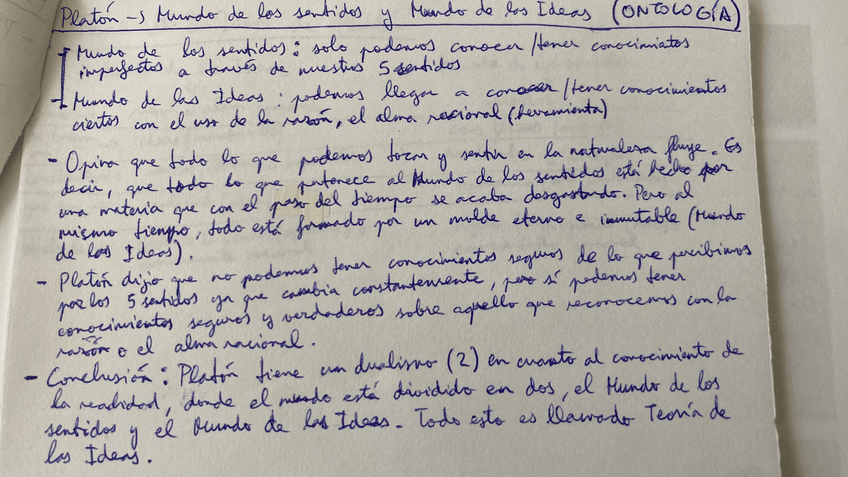 Platón → Mundo de los sentidos y Mundo de las Ideas (ONTOLOGÍA)
- Mundo de los sentidos: solo podemos conocer/tener conocimiatos
imperfectos a través de nuestros 5 sentidos
- Mundo de las Ideas: podemos llegar a conocer/tener conocimientos
ciertos con el uso de la razón, el alma racional (herramienta)
- Opina que todo lo que podemos tocar y sentir en la naturaleza fluye. Es
decir, que todo lo que pertenece al Mundo de los sentidos está hecho por
una materia que con el paso del tiempo se acaba desgastando. Pero al
mismo tiempo, todo está formado por un molde eterno e inmutable (Mundo
de las Ideas).
- Platón dijo que no podemos tener conocimientos seguros de lo que percibimos
por los 5 sentidos ya que cambia constantemente, pero sí podemos tener
conocimientos seguros y verdaderos sobre aquello que reconocemos con la
razón o el alma racional.
- Conclusión: Platón tiene un dualismo (2) en cuanto al conocimiento de
la realidad, donde el mundo está dividido en dos, el Mundo de los
sentidos y el Mundo de las Ideas. Todo esto es llamado Teoría de
las Ideas.